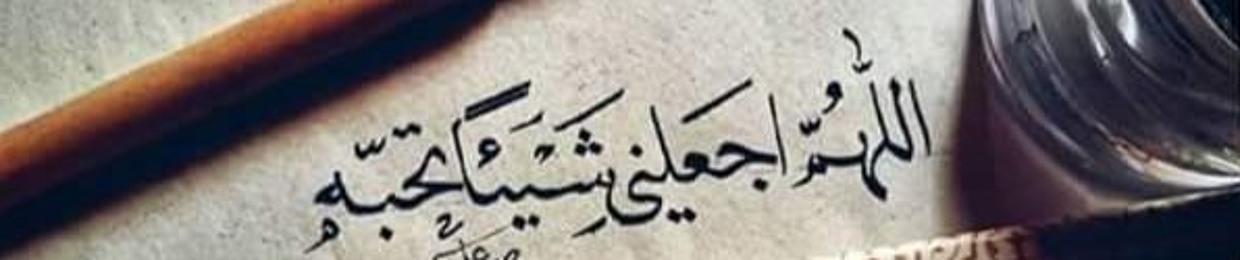 اللّٰهُمّ اجعلني شَيئاً تحبّه